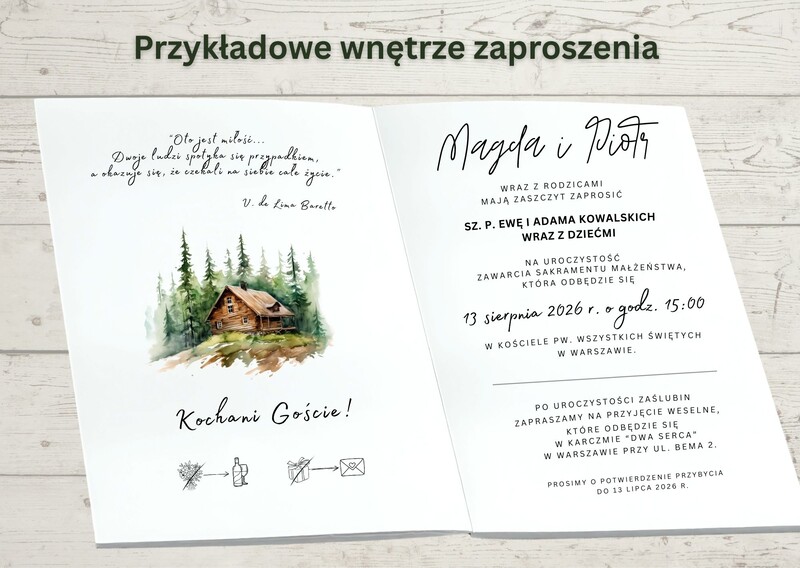 Przykładowe wnętrze zaproszenia
"Oto jest miłość...
Dwoje ludzi spotyka się przypadkiem,
a okazuje się, że czekali na siebie całe życie."
V. de Lima Baretto
Kochani Goście!
Magda i Piotr
WRAZ Z RODZICAMI
MAJĄ ZASZCZYT ZAPROSIĆ
SZ. P. EWĘ I ADAMA KOWALSKICH
WRAZ Z DZIEĆMI
NA UROCZYSTOŚĆ
ZAWARCIA SAKRAMENTU MAŁŻEŃSTWA,
KTÓRA ODBĘDZIE SIĘ
13 sierpnia 2026 r. o godz. 15:00
W KOŚCIELE PW. WSZYSTKICH ŚWIĘTYCH
W WARSZAWIE.
PO UROCZYSTOŚCI ZAŚLUBIN
ZAPRASZAMY NA PRZYJĘCIE WESELNE,
KTÓRE ODBĘDZIE SIĘ
W KARCZMIE "DWA SERCA"
W WARSZAWIE PRZY UL. BEMA 2.
PROSIMY O POTWIERDZENIE PRZYBYCIA
DO 13 LIPCA 2026 R.